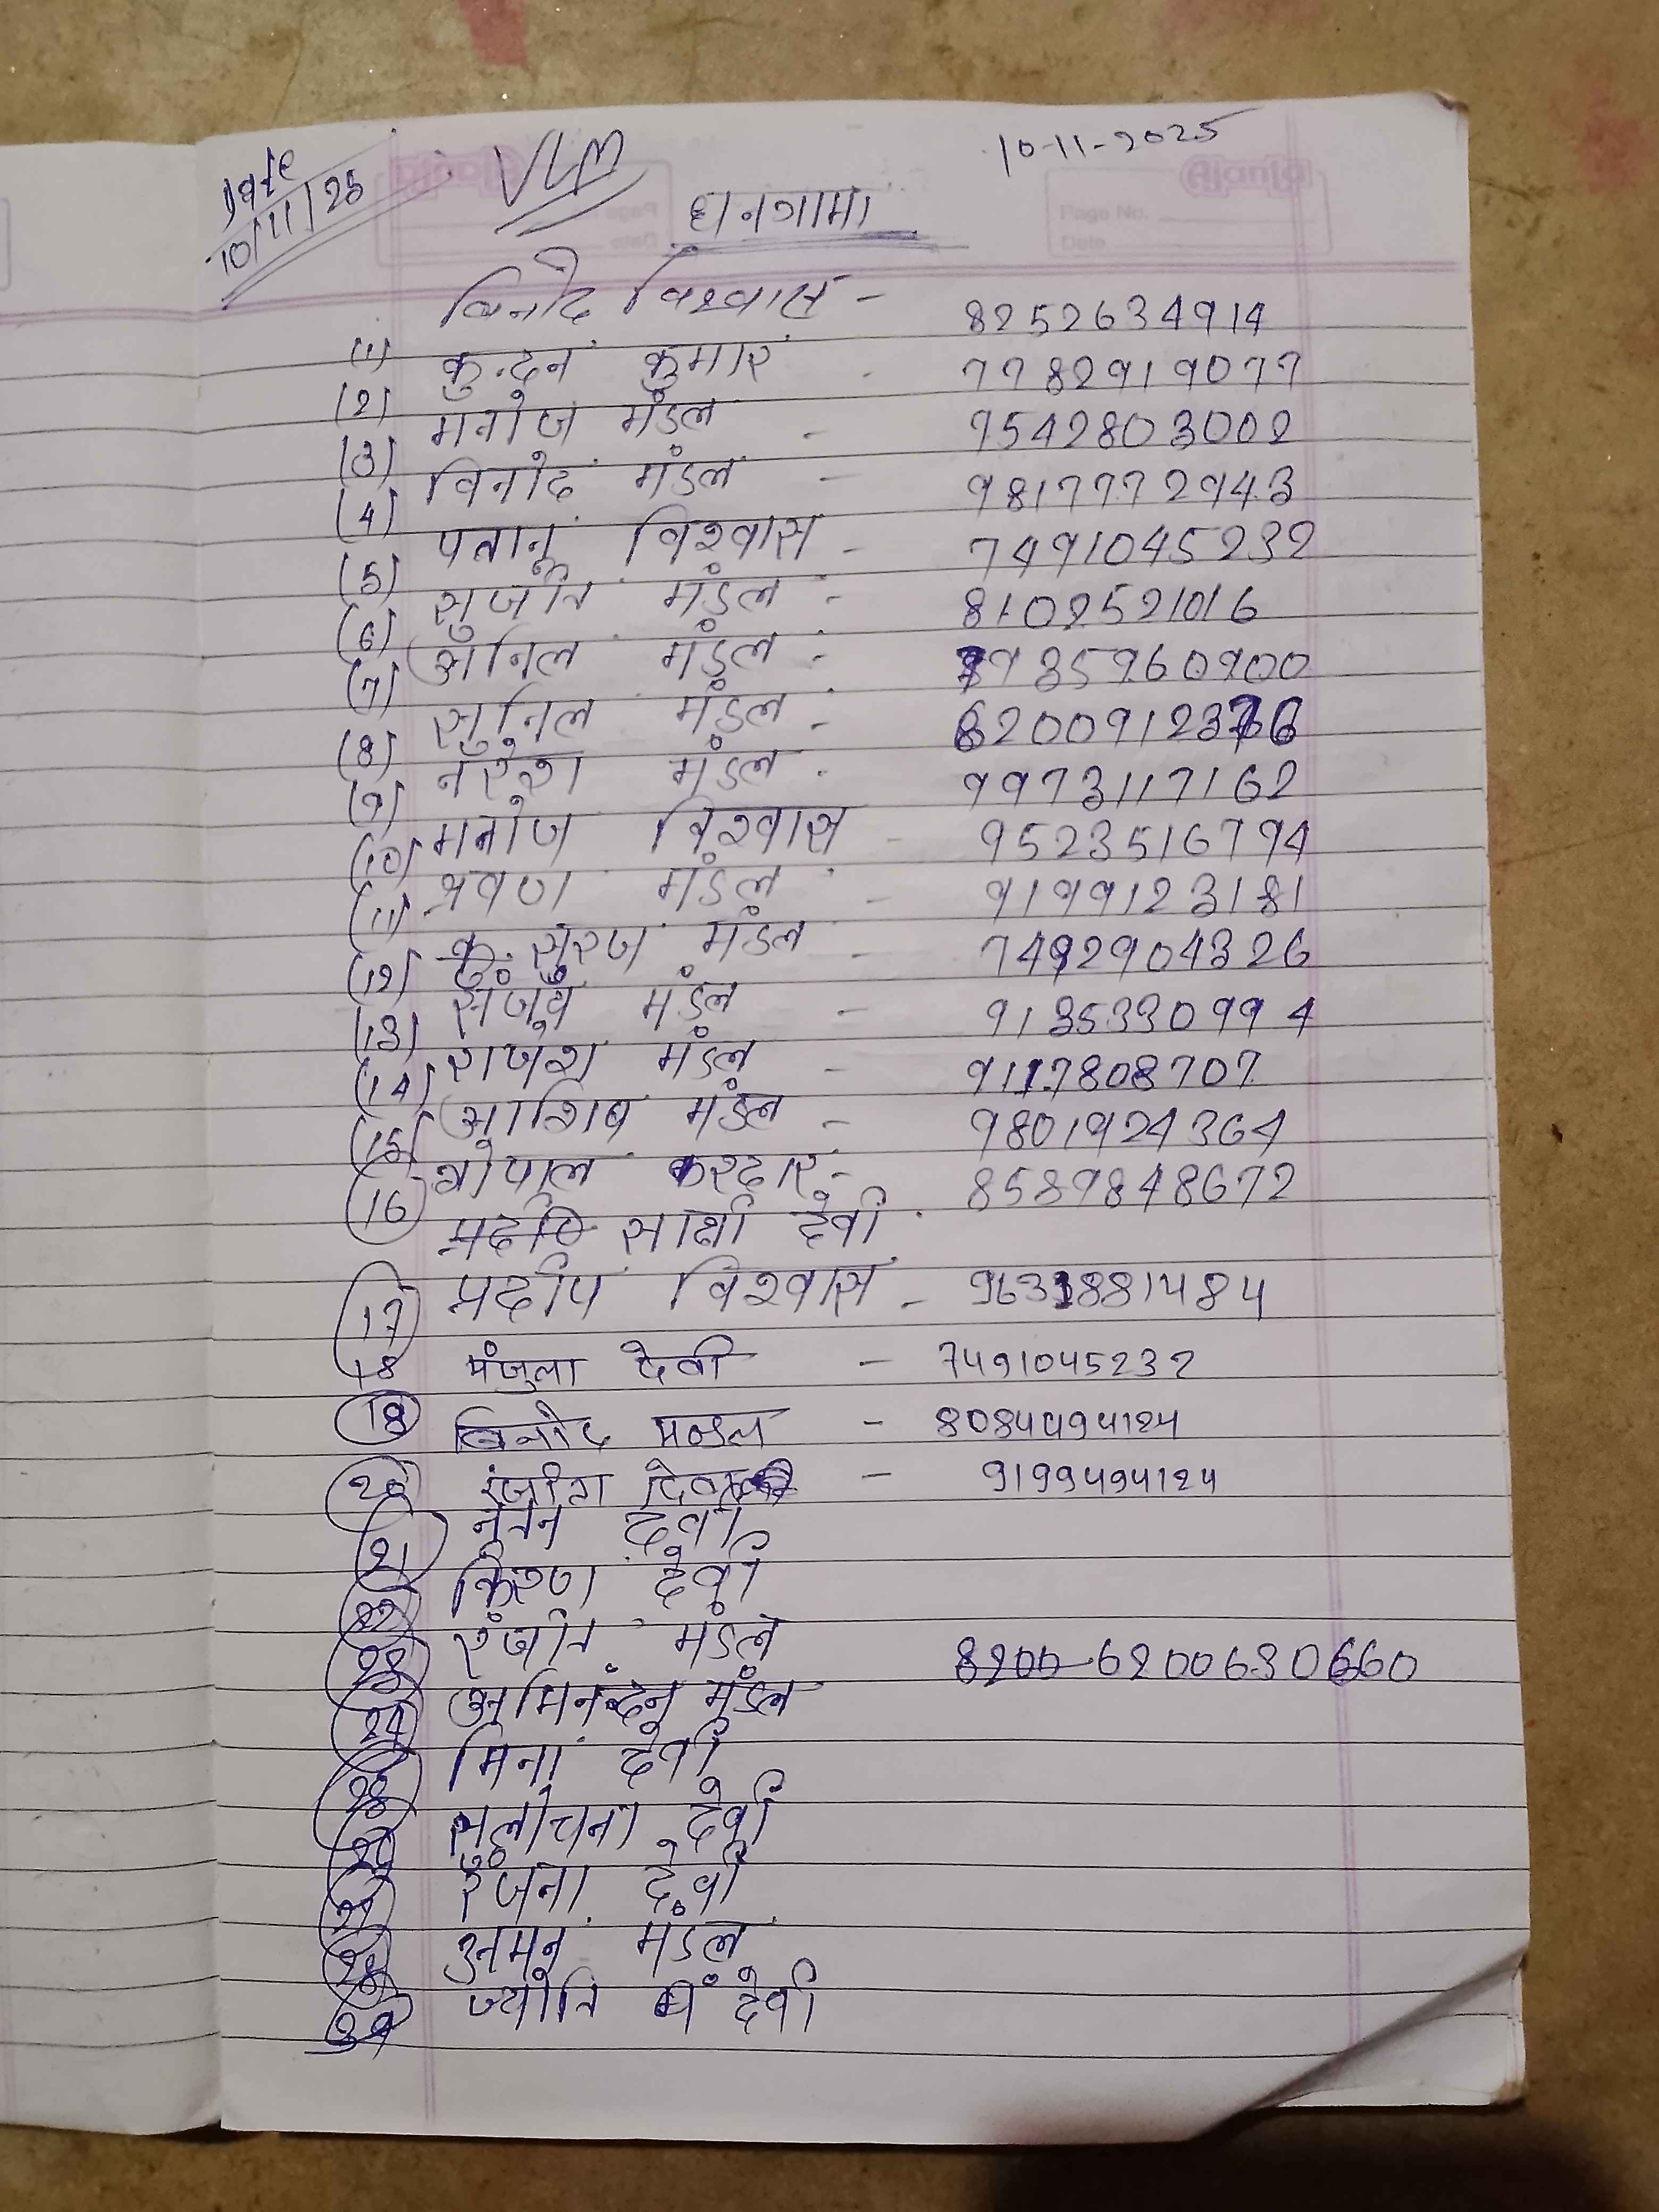 Date
10/11/25
VLM
10-11-2025
Ajanta
Page No.
Date
धनगामा
विनोद विश्वास - 8252634914
(1) कुन्दन कुमार 7782919077
(2) मनोज मंडल - 9542803002
(3) विनोद मंडल - 9817772943
(4) विश्वास - 7491045232
(5) सुजीत मंडल - 8102521016
(6) अनिल मंडल - 935960900
(7) सुनिल मंडल - 6200912376
(8) नरेश मंडल - 9973117162
(9) मनोज विश्वास - 9523516794
(10) श्रवण मंडल - 9199123181
(11) कु. सुरज मंडल - 7492904326
(12) संजय मंडल - 9135330994
(13) राजेश मंडल - 9117808707
(14) आशिष मंडल - 9801924364
(15) गोपाल करदार - 8589848672
(16) साक्षी देवी
(17) प्रदीप विश्वास - 9631881484
18 मंजुला देवी - 7491045232
(19) विनोद मण्डल - 8084494124
(20) - 9199494124
(21) नुतन देवी
(22) किरण देवी
(23) रंजीत मंडल
8200 6200630660
(24) अभिनंदन मंडल
(25) मिना देवी
(26) सुलोचना देवी
(27) रंजना देवी
(28) अमन मंडल
ज्योति देवी